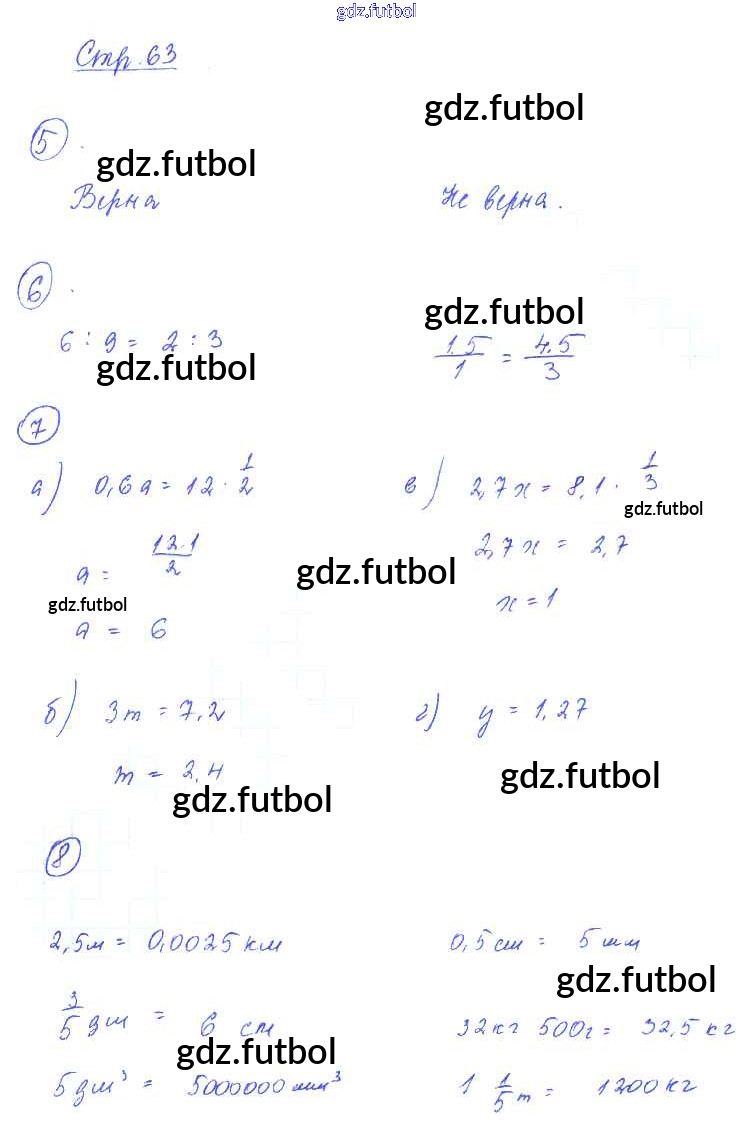 gdz.futbol
Стр. 63
gdz.futbol
5
gdz.futbol
Верна
Не верна.
6
gdz.futbol
6 : 9 = 2 : 3
1.5/1 = 4.5/3
gdz.futbol
7
а) 0,6a = 12 · 1/2
в) 2,7x = 8,1 · 1/3
gdz.futbol
a = 12·1/2
2,7x = 2,7
gdz.futbol
x = 1
gdz.futbol
a = 6
б) 3m = 7,2
г) y = 1,27
m = 2,4
gdz.futbol
gdz.futbol
8
2,5м = 0,0025 км
0,5 см = 5 мм
gdz.futbol
3/5 дм = 6 см
32 кг 500г = 32,5 кг
gdz.futbol
5 дм³ = 5000000 мм³
1 1/5 т = 1200 кг